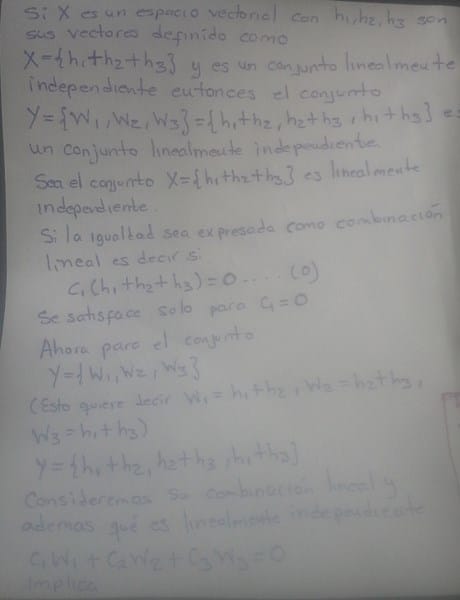 Si X es un espacio vectorial con h1, h2, h3 son
sus vectores definido como
X={h1+h2+h3} y es un conjunto linealmente
independiente entonces el conjunto
Y={W1, W2, W3}={h1+h2, h2+h3, h1+h3} es
un conjunto linealmente independiente.
Sea el conjunto X={h1+h2+h3} es linealmente
independiente.
Si la igualdad sea expresada como combinación
lineal es decir si
C1(h1+h2+h3)=0 .... (0)
Se satisface solo para C1=0
Ahora para el conjunto
Y={W1, W2, W3}
(Esto quiere decir W1=h1+h2, W2=h2+h3,
W3=h1+h3)
Y={h1+h2, h2+h3, h1+h3}
Consideremos su combinación lineal y
ademas qué es linealmente independiente
C1W1+C2W2+C3W3=0
Implica